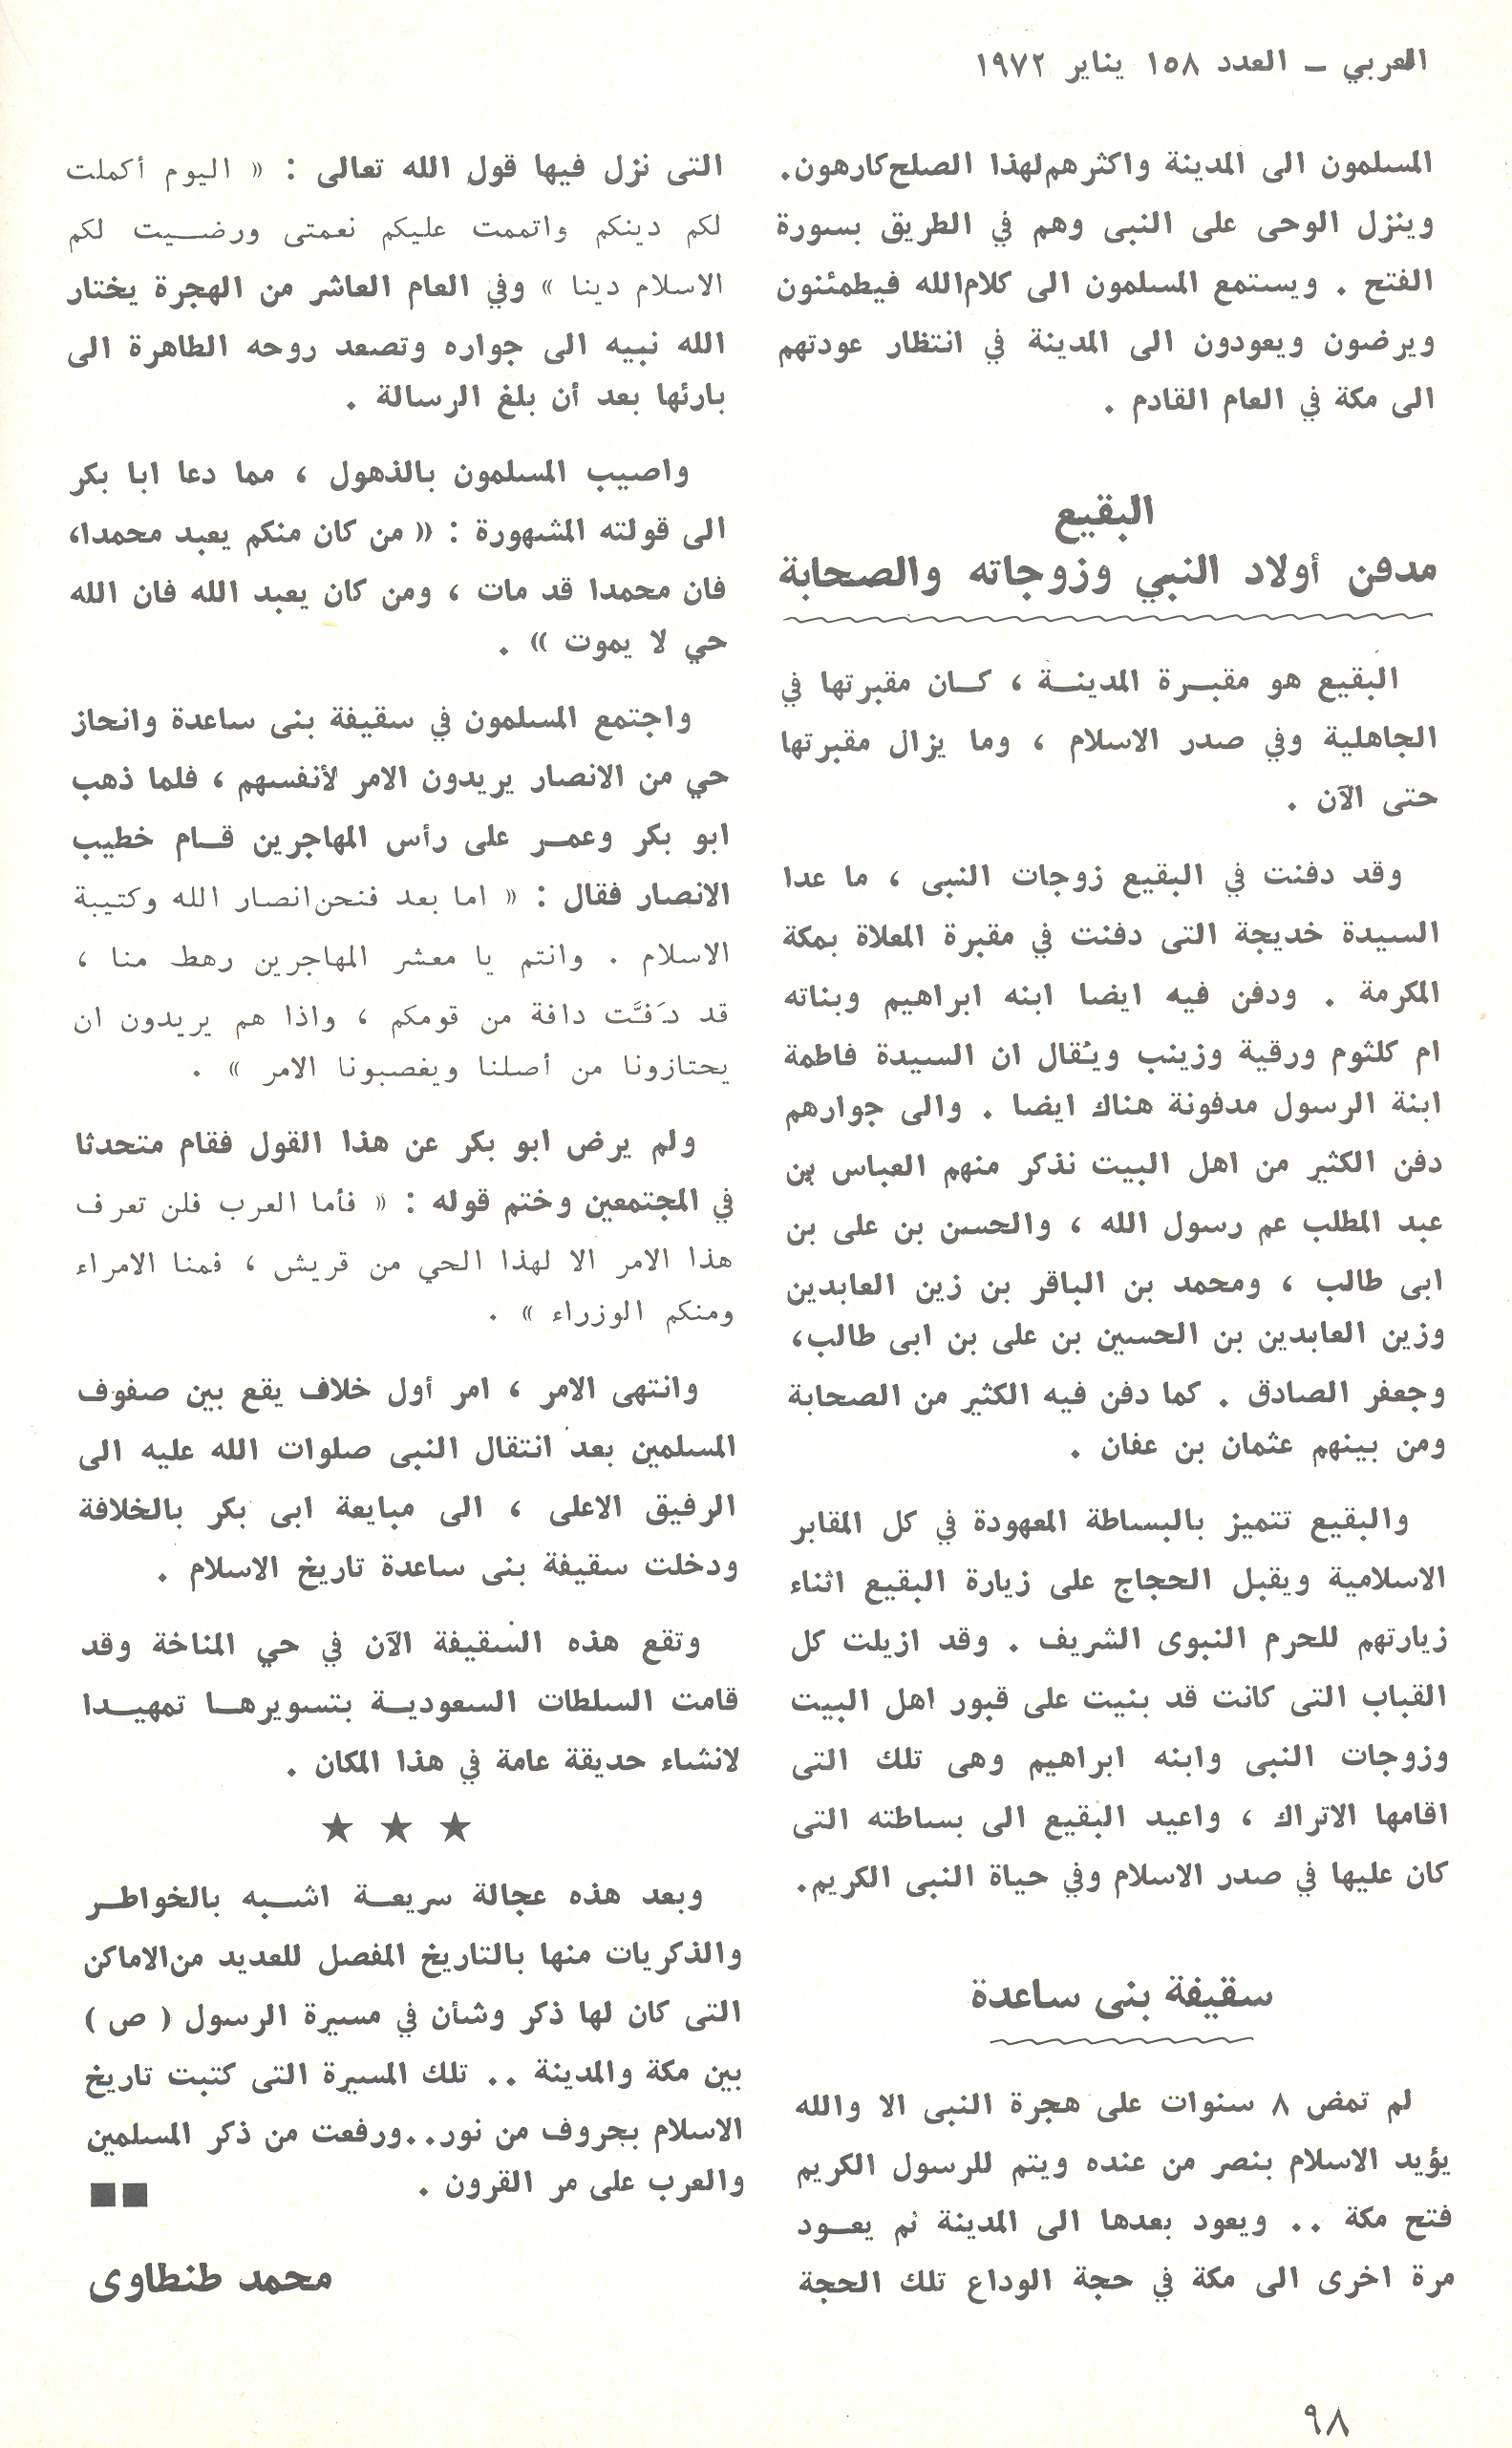 العربي – العدد ١٥٨ يناير ١٩٧٢
المسلمون الى المدينة واكثرهم لهذا الصلح كارهون.
وينزل الوحى على النبى وهم في الطريق بسورة
الفتح . ويستمع المسلمون الى كلام الله فيطمئنون
ويرضون ويعودون الى المدينة في انتظار عودتهم
الى مكة في العام القادم .
البقيع
مدفن أولاد النبي وزوجاته والصحابة
البقيع هو مقبرة المدينة ، كان مقبرتها في
الجاهلية وفي صدر الاسلام ، وما يزال مقبرتها
حتى الآن .
وقد دفنت في البقيع زوجات النبى ، ما عدا
السيدة خديجة التى دفنت في مقبرة المعلاة بمكة
المكرمة . ودفن فيه ايضا ابنه ابراهيم وبناته
ام كلثوم ورقية وزينب ويُقال ان السيدة فاطمة
ابنة الرسول مدفونة هناك ايضا . والى جوارهم
دفن الكثير من اهل البيت نذكر منهم العباس بن
عبد المطلب عم رسول الله ، والحسن بن على بن
ابى طالب ، ومحمد بن الباقر بن زين العابدين
وزين العابدين بن الحسين بن على بن ابى طالب،
وجعفر الصادق . كما دفن فيه الكثير من الصحابة
ومن بينهم عثمان بن عفان .
والبقيع تتميز بالبساطة المعهودة في كل المقابر
الاسلامية ويقبل الحجاج على زيارة البقيع اثناء
زيارتهم للحرم النبوى الشريف . وقد ازيلت كل
القباب التى كانت قد بنيت على قبور اهل البيت
وزوجات النبى وابنه ابراهيم وهى تلك التى
اقامها الاتراك ، واعيد البقيع الى بساطته التى
كان عليها في صدر الاسلام وفي حياة النبى الكريم.
سقيفة بنى ساعدة
لم تمض ٨ سنوات على هجرة النبى الا والله
يؤيد الاسلام بنصر من عنده ويتم للرسول الكريم
فتح مكة .. ويعود بعدها الى المدينة ثم يعود
مرة اخرى الى مكة في حجة الوداع تلك الحجة
التى نزل فيها قول الله تعالى : « اليوم أكملت
لكم دينكم واتممت عليكم نعمتى ورضيت لكم
الاسلام دينا » وفي العام العاشر من الهجرة يختار
الله نبيه الى جواره وتصعد روحه الطاهرة الى
بارئها بعد أن بلغ الرسالة .
واصيب المسلمون بالذهول ، مما دعا ابا بكر
الى قولته المشهورة : « من كان منكم يعبد محمدا،
فان محمدا قد مات ، ومن كان يعبد الله فان الله
حي لا يموت » .
واجتمع المسلمون في سقيفة بنى ساعدة وانحاز
حي من الانصار يريدون الامر لأنفسهم ، فلما ذهب
ابو بكر وعمر على رأس المهاجرين قام خطيب
الانصار فقال : « اما بعد فنحن انصار الله وكتيبة
الاسلام . وانتم يا معشر المهاجرين رهط منا ،
قد دَفَّت دافة من قومكم ، واذا هم يريدون ان
يحتازونا من أصلنا ويغصبونا الامر » .
ولم يرض ابو بكر عن هذا القول فقام متحدثا
في المجتمعين وختم قوله : « فأما العرب فلن تعرف
هذا الامر الا لهذا الحي من قريش ، فمنا الامراء
ومنكم الوزراء » .
وانتهى الامر ، امر أول خلاف يقع بين صفوف
المسلمين بعد انتقال النبى صلوات الله عليه الى
الرفيق الاعلى ، الى مبايعة ابى بكر بالخلافة
ودخلت سقيفة بنى ساعدة تاريخ الاسلام .
وتقع هذه السقيفة الآن في حي المناخة وقد
قامت السلطات السعودية بتسويرها تمهيدا
لانشاء حديقة عامة في هذا المكان .
★ ★ ★
وبعد هذه عجالة سريعة اشبه بالخواطر
والذكريات منها بالتاريخ المفصل للعديد من الاماكن
التى كان لها ذكر وشأن في مسيرة الرسول ( ص )
بين مكة والمدينة .. تلك المسيرة التى كتبت تاريخ
الاسلام بحروف من نور..ورفعت من ذكر المسلمين
والعرب على مر القرون .
محمد طنطاوى
٩٨